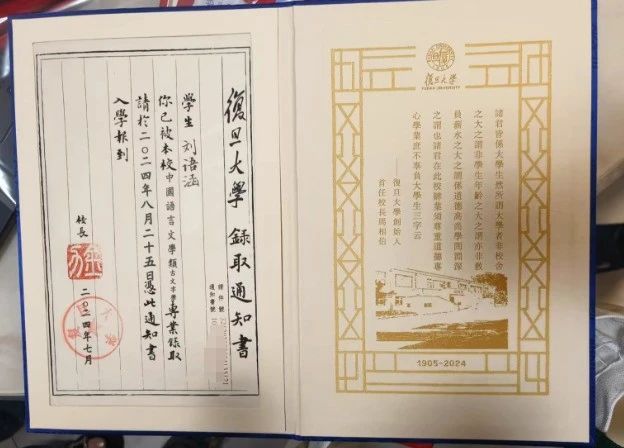 復旦大學 録取通知書
學生 刘语涵
你已被本校中國語言文學類古文字學專業録取
請於二〇二四年八月二十五日憑此通知書
入學報到
校長
二〇二四年七月
復旦大學
FUDAN UNIVERSITY
諸君皆係大學生然所謂大學者非校舍
之大之謂非學生年齡之大之謂亦非教
員薪水之大之謂係道德高尚學問淵深
之謂也諸君在此校肄業須尊重道德專
心學業庶不事負大學生三字云
——復旦大學創始人
首任校長馬相伯
1905-2024